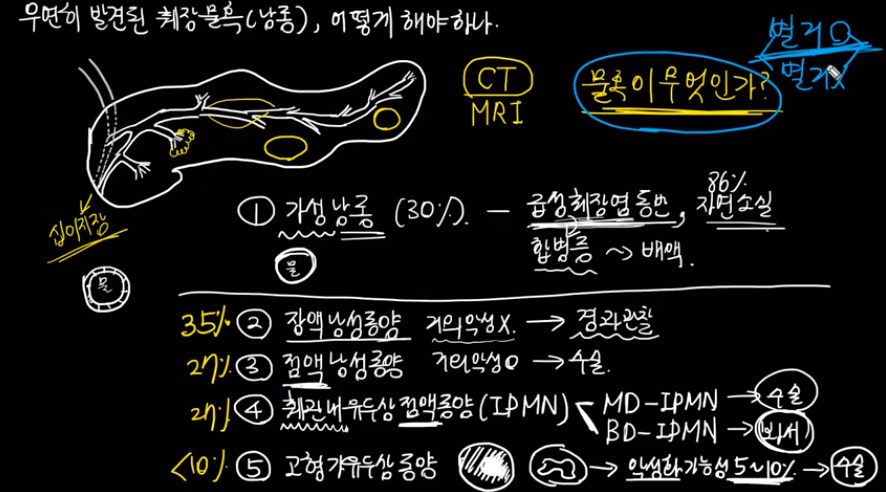 우연히 발견된 췌장물혹(낭종), 어떻게 해야하나.
별거 O
별거X
CT
MRI
물혹이 무엇인가?
십이지장
물
① 가성낭종 (30%). — 급성췌장염 동반, 86% 자연소실
합병증 ~> 배액.
물
35% ② 장액낭성종양 거의악성X. → 경과관찰
27% ③ 점액낭성종양 거의악성O → 수술.
27% ④ 췌관내유두상점액종양(IPMN) MD-IPMN → 수술
BD-IPMN →
<10% ⑤ 고형가유두상종양 → 악성화가능성 5~10% → 수술